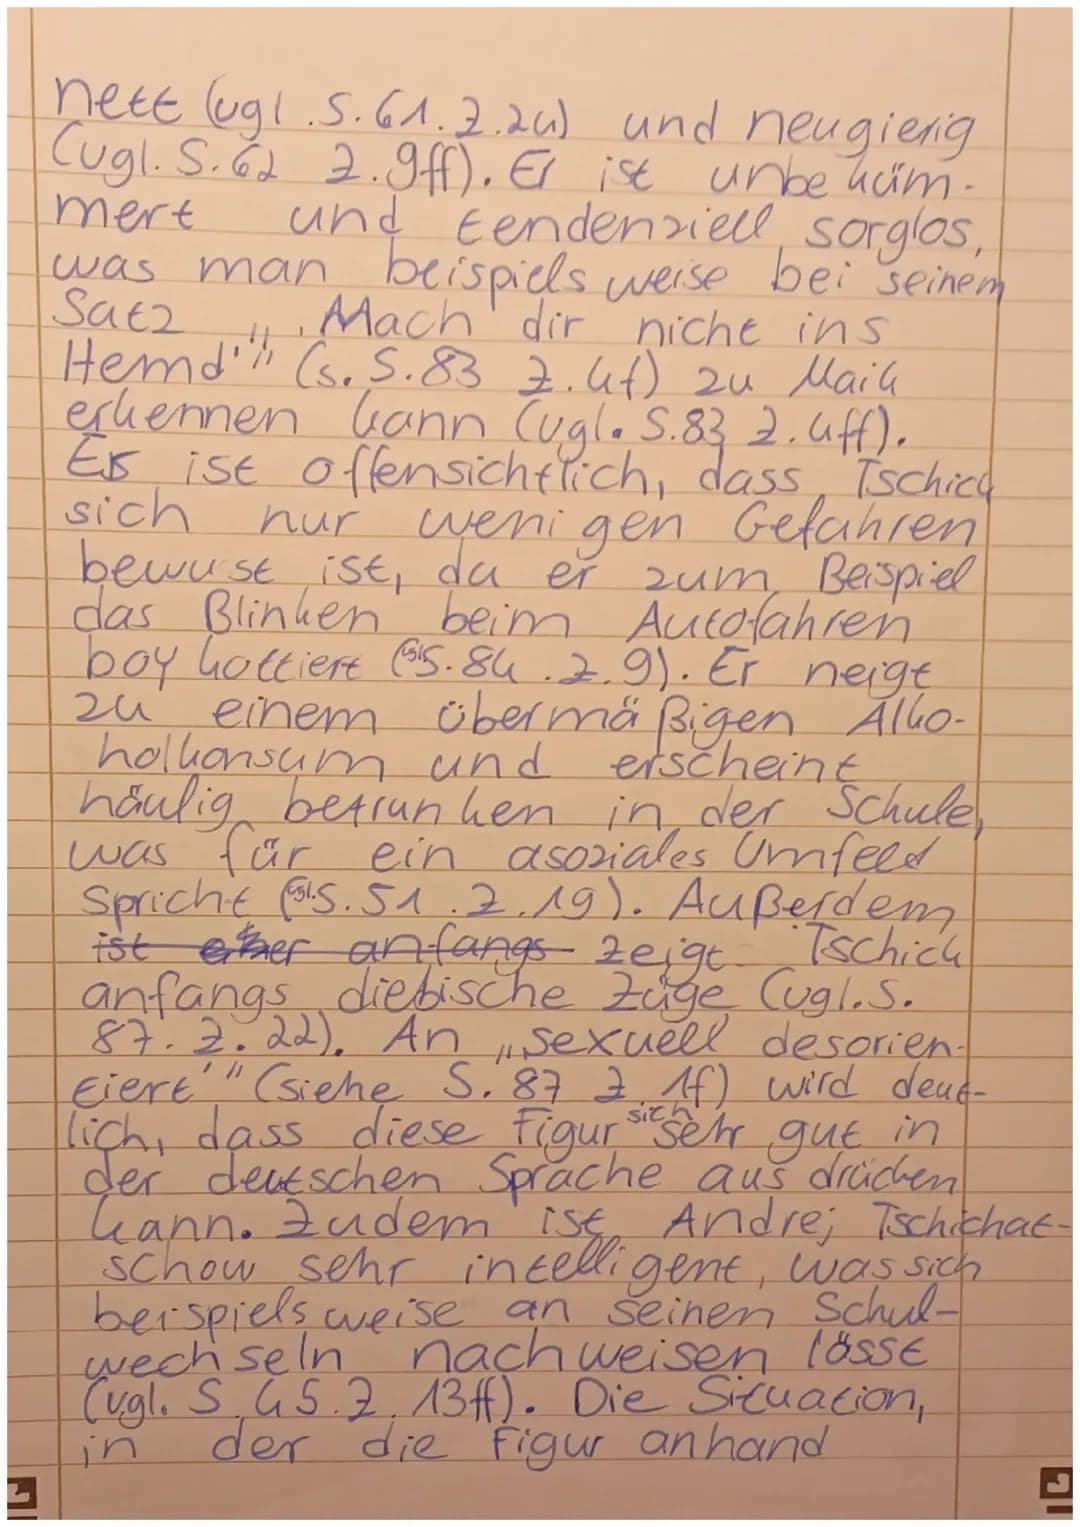 nett (vgl. S. 61. Z. 24) und neugierig
(vgl. S. 62 Z. 9ff). Er ist unbeküm-
mert und tendenziell sorglos,
was man beispielsweise bei seinem
Satz „‚Mach dir nicht ins
Hemd'" (s. S. 83 Z. 4f) zu Maik
erkennen kann (vgl. S. 83 Z. 4ff).
Es ist offensichtlich, dass Tschick
sich nur wenigen Gefahren
bewust ist, da er zum Beispiel
das Blinken beim Autofahren
boykottiert (vgl. S. 84. Z. 9). Er neigt
zu einem übermäßigen Alko-
holkonsum und erscheint
häufig betrunken in der Schule,
was für ein asoziales Umfeld
spricht (vgl. S. 51. Z. 19). Außerdem
ist eher anfangs zeigt Tschick
anfangs diebische Züge (vgl. S.
87. Z. 22). An „‚sexuell desorien-
tiert'" (siehe S. 87 Z. 1f) wird deut-
lich, dass diese Figur sich sehr gut in
der deutschen Sprache ausdrücken
kann. Zudem ist Andrej Tschichat-
schow sehr intelligent, was sich
beispielsweise an seinen Schul-
wechseln nachweisen lässt
(vgl. S. 45. Z. 13ff). Die Situation,
in der die Figur anhand